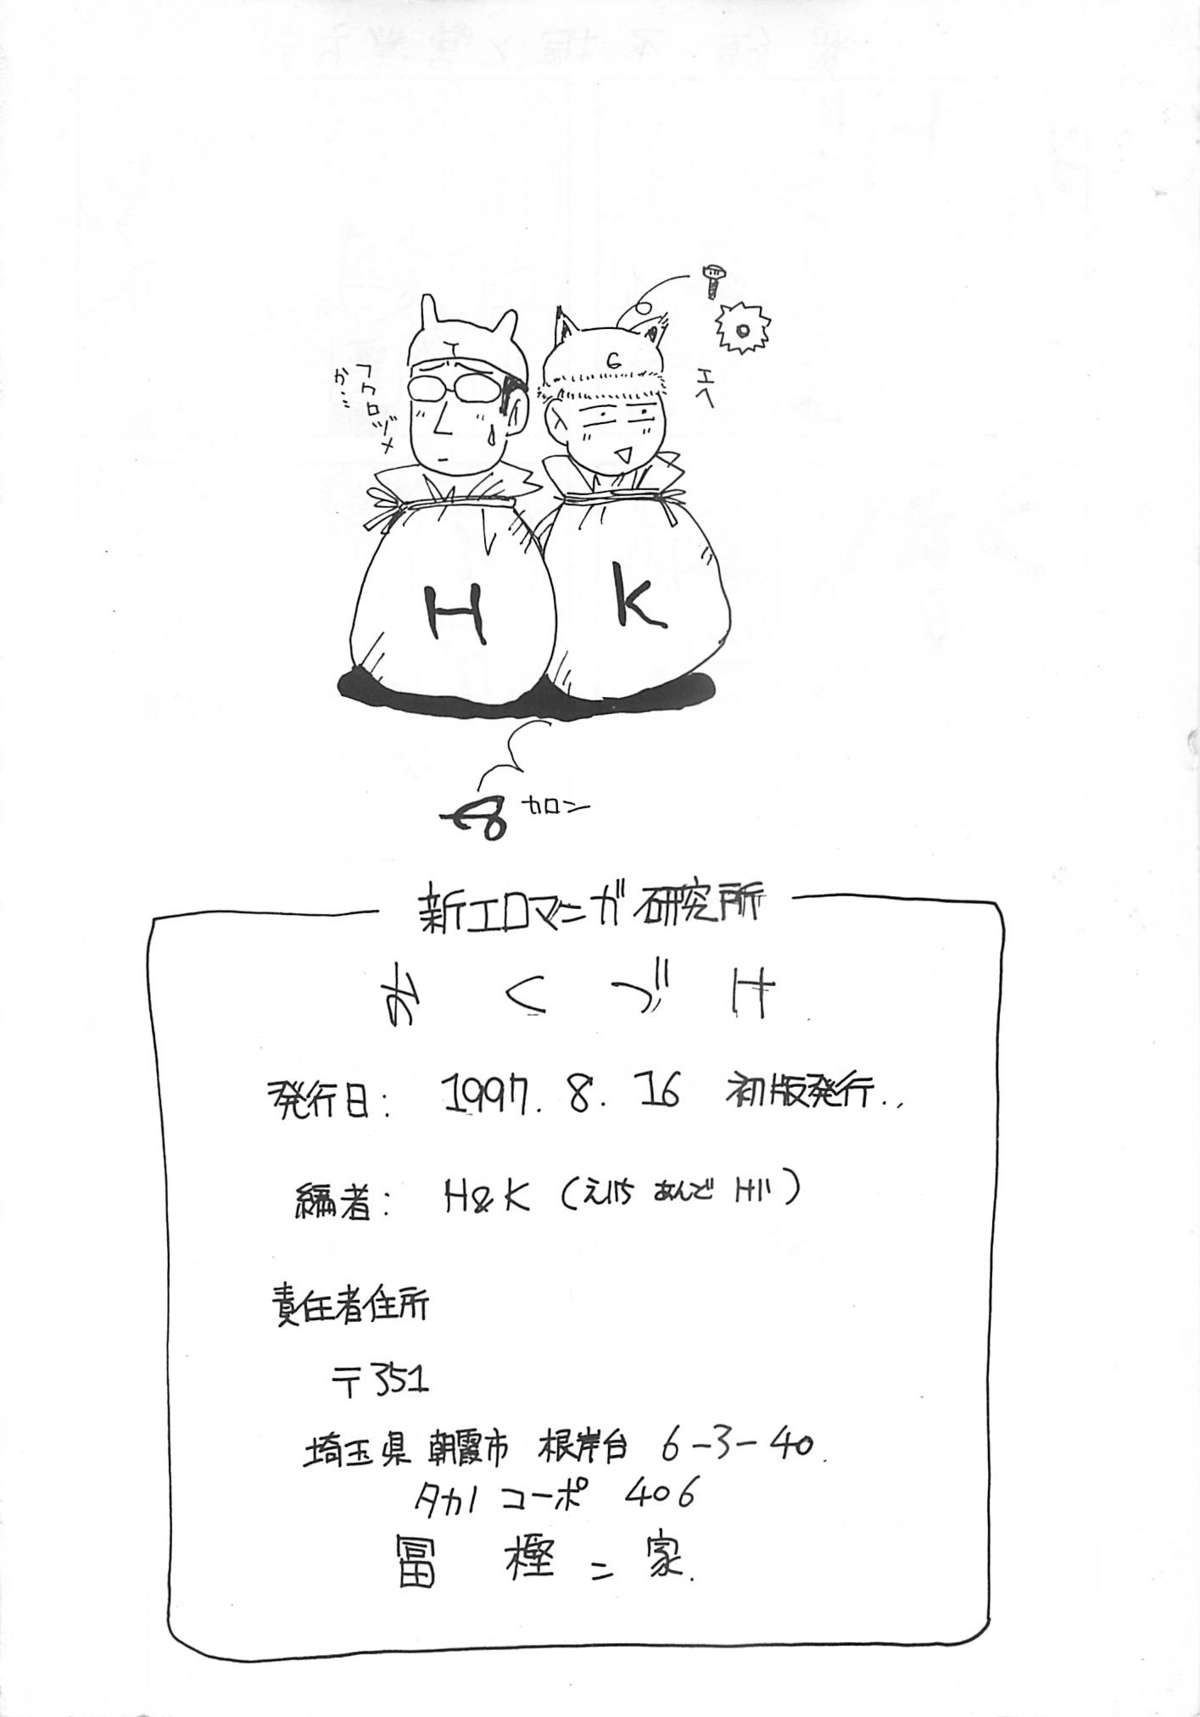 T
G
フクロヅメ
か…
エヘ
H
K
カロン
新エロマニガ研究所
おくづけ
発行日: 1997. 8. 16 初版発行..
編者: H&K (えいち あんど けい)
責任者住所
〒351
埼玉県 朝霞市 根岸台 6-3-40.
タカノ コーポ 406
冨樫ニ家.